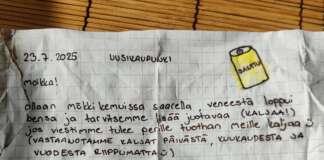 23.7.2025 UUSIKAUPUNKI
Moikka!
Ollaan mökkikemuissa saarella, veneestä loppui
bensa ja tarvitsemme lisää juotavaa (KALJAA!)
jos viestimme tulee perille tuothan meille kaljaa :)
(VASTAANOTAMME KALJAT PÄIVÄSTÄ, KUUKAUDESTA JA
VUODESTA RIIPPUMATTA :)